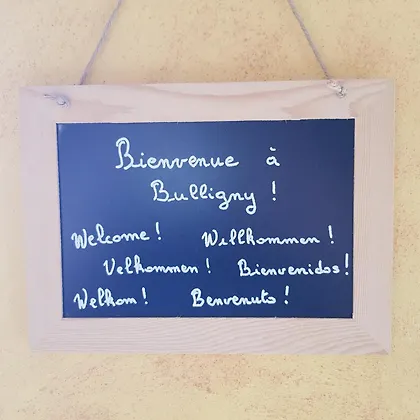 Bienvenue à
Bulligny !
Welcome ! Willkommen !
Velkommen ! Bienvenidos !
Welkom ! Benvenuto !